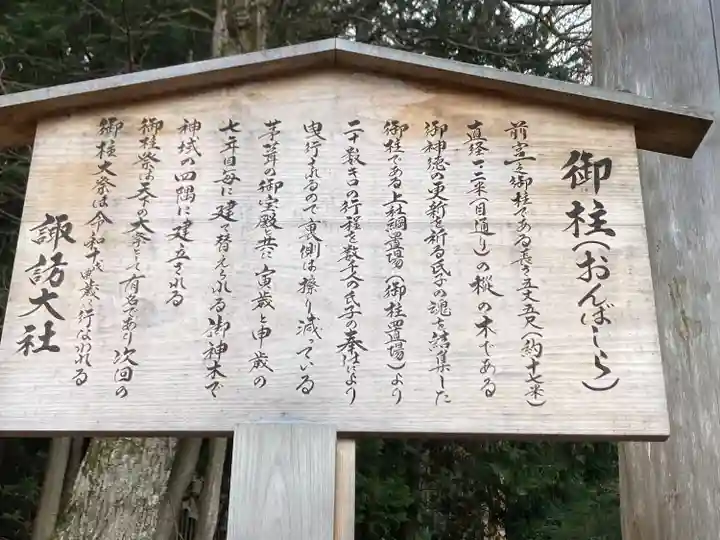 御柱(おんばしら)
前宮一之御柱である長さ五丈五尺(約十七米)
直径一・二米(目通り)の樅の木である
御神徳の更新を祈る氏子の魂を結集した
御柱である上社綱置場(御柱置場)より
二十数キロの行程を数千人の氏子の奉仕により
曳行されるので裏側は擦り減っている
茅葺の御宝殿共に寅歳と申歳の
七年目毎に建て替えられる御神木で
神域の四隅に建立される
御柱祭は天下の大祭として有名であり次回の
御柱大祭は令和十年申歳に行なわれる
諏訪大社